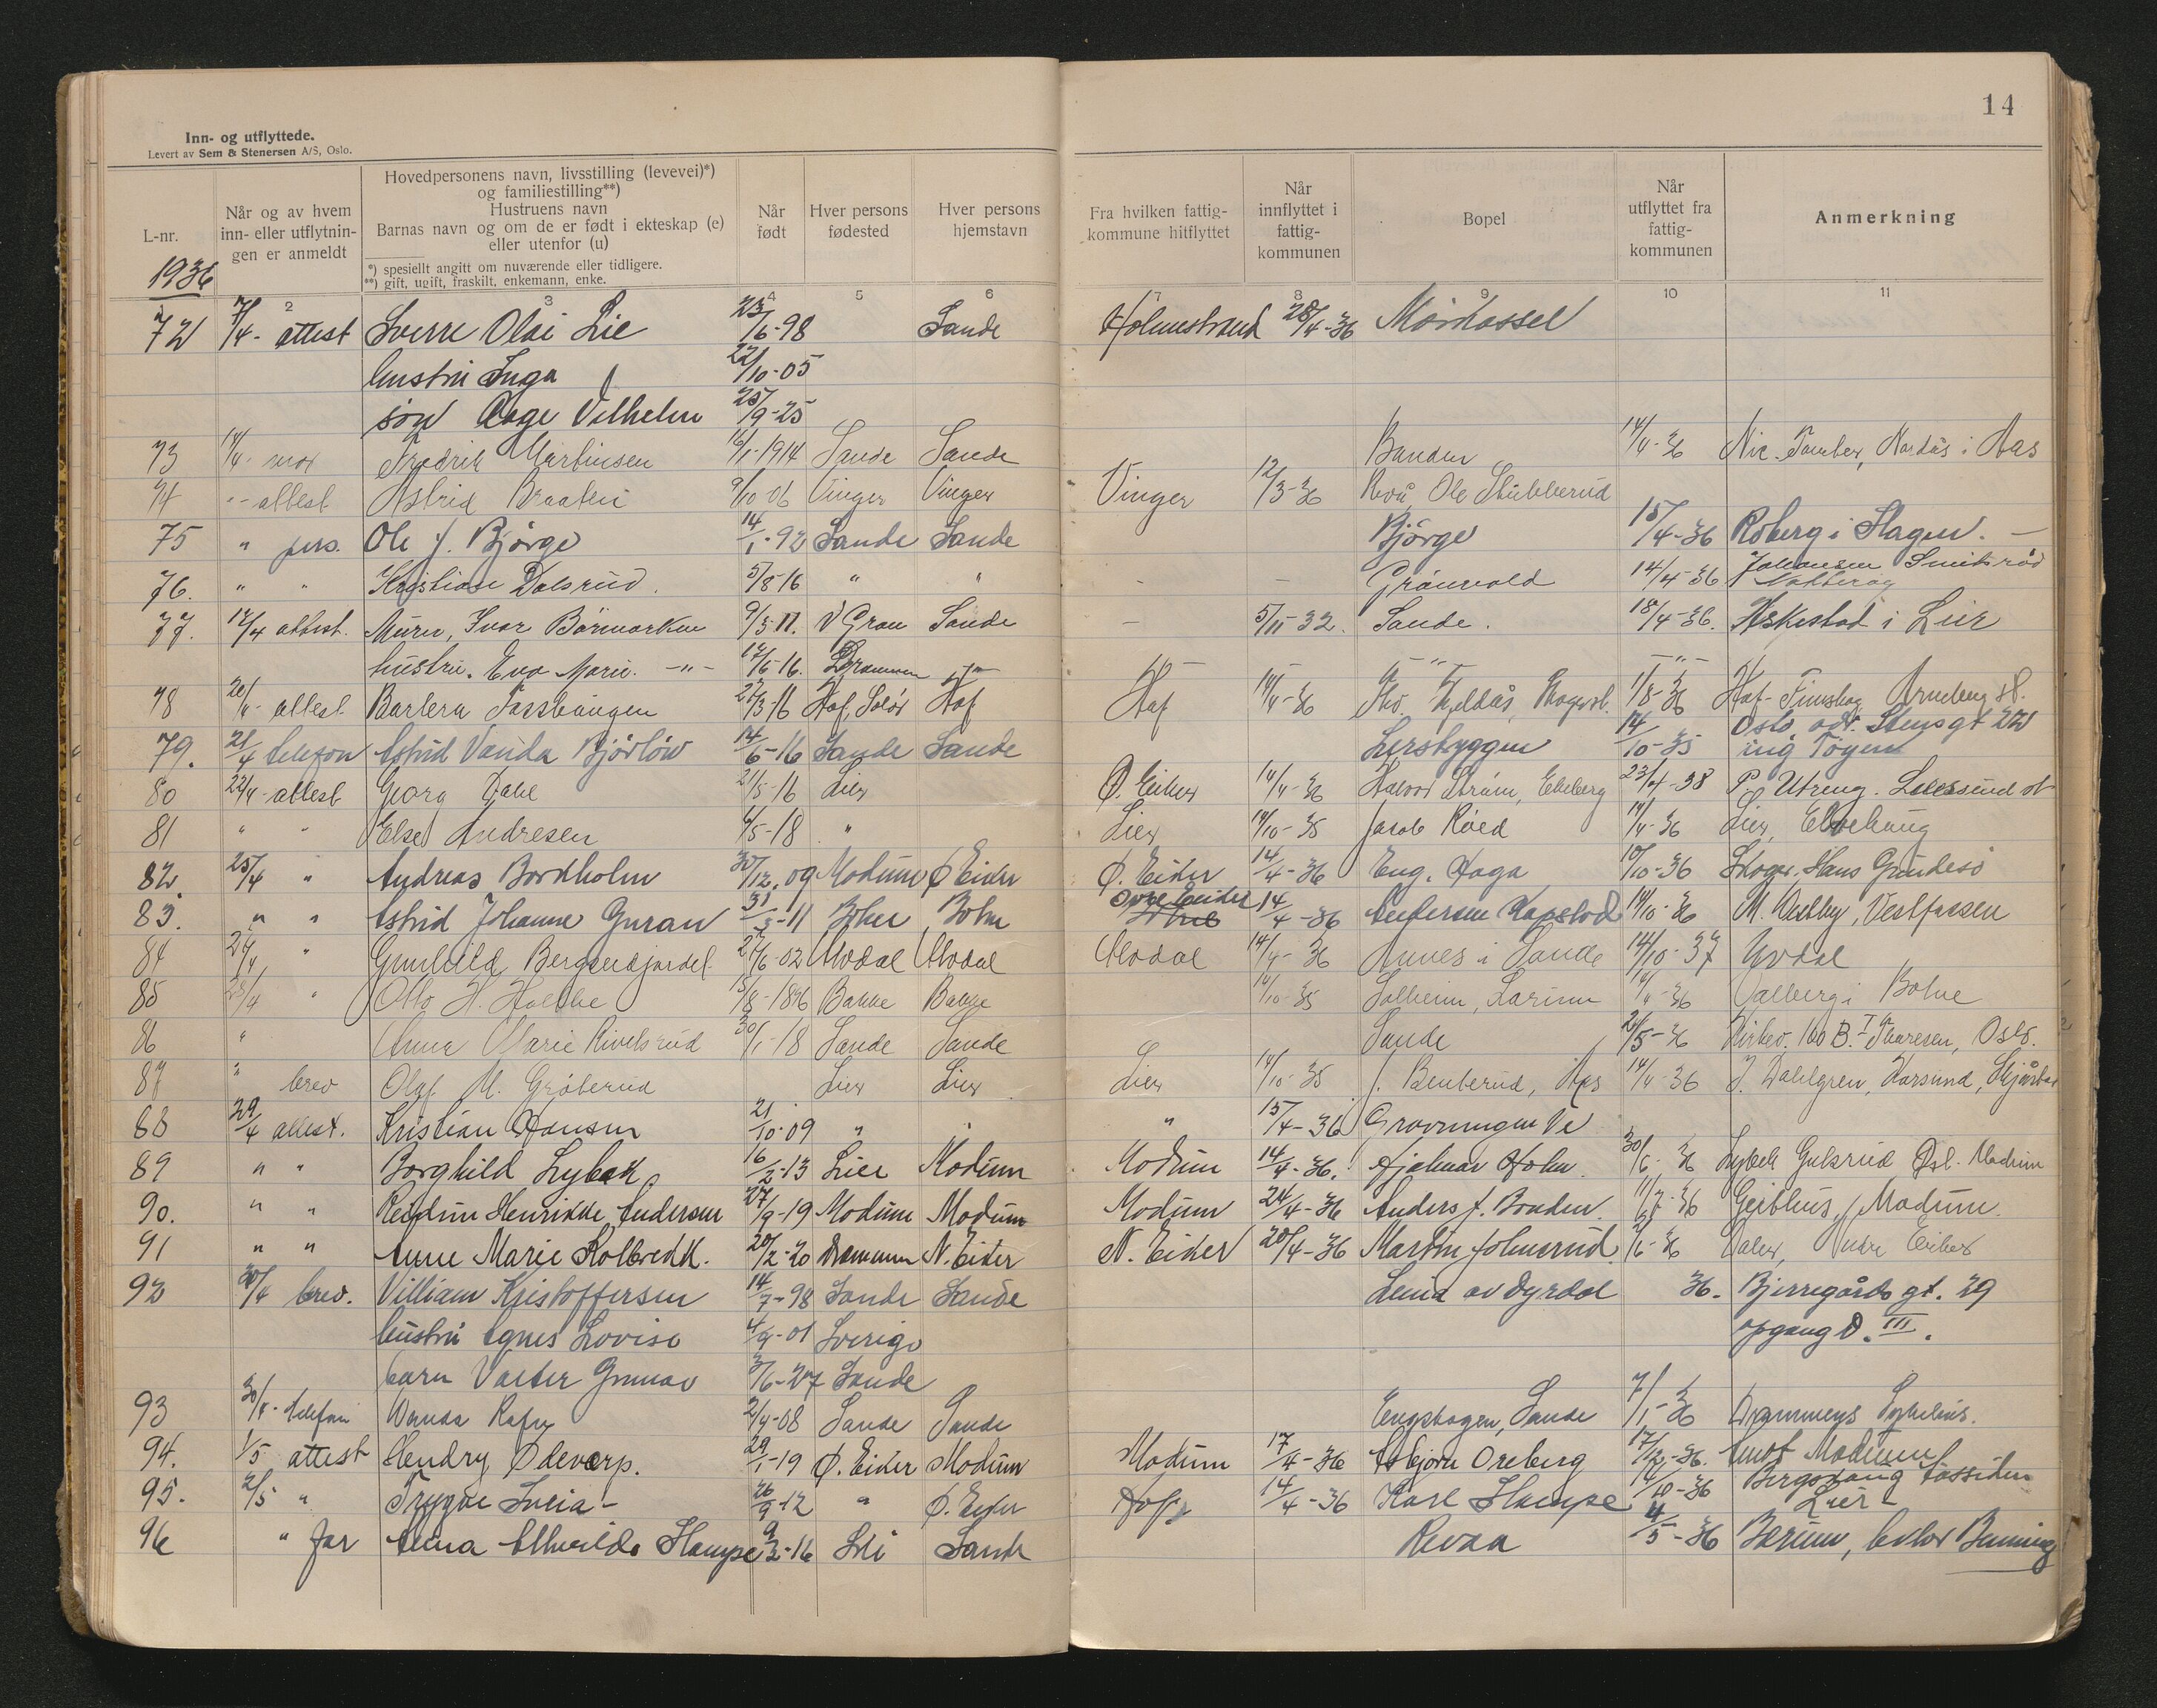 14
Inn- og utflyttede.
Levert av Sem & Stenersen A/S, Oslo.
L-nr.
Når og av hvem inn- eller utflytnin- gen er anmeldt
Hovedpersonens navn, livsstilling (levevei)*)
og familiestilling**)
Hustruens navn
Barnas navn og om de er født i ekteskap (e)
eller utenfor (u)
*) spesiellt angitt om nuværende eller tidligere.
**) gift, ugift, fraskilt, enkemann, enke.
Når født
Hver persons fødested
Hver persons hjemstavn
Fra hvilken fattig- kommune hitflyttet
Når innflyttet i fattig- kommunen
Bopel
Når utflyttet fra fattig- kommunen
Anmerkning
1936
2 3 4 5 6 7 8 9 10 11
72 7/4- attest Sverre Olai Lie 23/6-98 Sande Holmestrand 28/4-36
hustru Inga 22/10-05
søn Aage Vilhelm 25/9-25
73 14/4- Fredrik Martinsen 16/1-1914 Sande Sande Banden 14/4-36 i Aas
74 -"- attest Astrid Braaten 9/10-06 Vinger Vinger Vinger 12/3-36 Revå, Ole Stubberud
75 " pers. Ole J. Bjørge 14/1-92 Sande Sande Bjørge 15/4-36 Roberg i Slagen. -
76. " " Kristian Dalsrud. 5/8-16 " " - - Grønvold 14/4-36 Johansen
77. 17/4 attest. Murer, Ivar Børmarken 9/3-11. V Gran Sande - 5/11-32. Sande. 18/4-36. Askestad i Lier
hustru. Eva Marie. -"- 17/6-16. Drammen -"- - - -"- -"-
78 20/4- attest Barbera 27/3-16 Hof, Solør Hof Hof 14/4-36 1/8-36 Hof- Arneberg st.
79. 21/4 telefon Astrid Vanda Bjørløw 14/6-16 Sande Sande Lersbryggen 14/10-35 Oslo adr. Stensgt 22
ing Tøyen
80 22/4- attest Georg Dahl 21/5-16 Lier Ø. Eiker 14/4-36 Halvor Strøm, Ekeberg 23/4-38
81 " " Else Andresen 4/5-18 " Lier 14/10-35 Jacob Røed 14/4-36 Lier,
82. 25/4 " Andreas Bordholm 30/12.09 Modum Ø Eiker Ø. Eiker 14/4-36 Eng. Haga 10/10-36 Skoger, Hans
83. " " Astrid Johanne Guran 31/3-11 Botne Botne Øvre Eiker 14/4-36 Andersen Kapstad 14/10-36 M. Vestby, Vestfossen
84 27/4 " Gunhild 27/6-02 Uvdal Uvdal Uvdal 14/4-36 Annes i Sande 14/10-37 Uvdal
85 28/4 " Otto H. 5/8-1896 Bakke Bakke 14/10-35 Solheim, 14/4-36 Valberg i Botne
86 " Anna Marie Rivelsrud 30/1-18 Sande Sande Sande 26/5-36 Kirkev. 160 B. I Thoresen, Oslo.
87 " brev Olaf M. Grøterud Lier Lier Lier 14/10-35 J. Benterud, Aas 14/4-36 J. Dahlgren,
88 29/4 attest. Kristian Hansen 21/10-09 " " " 15/4-36 Gravningen Ve
89 " " Borghild Lybæk 16/2-13 Lier Modum Modum 14/4-36. Hjalmar Holm 30/6-36 Lybek Gulsrud Modum
90. " " Reidun Henrikke Andersen 27/9-19 Modum Modum Modum 24/4-36 Anders J. Bonden. 11/7-36 Geithus, Modum.
91 " " Anne Marie Kolbrekk. 20/2-20 Drammen N. Eiker N. Eiker 20/4-36 Martin Holmsrud. 2/6-36 Nedre Eiker
92 30/4 brev. Villiam Kristoffersen 14/7-98 Sande Sande Leina av Dyrdal 36. Bjerregårds gt. 29
hustru Agnes Lovise 4/9-01 Sverige opgang D. III.
barn Valter Gunnar 3/6-27 Sande
93 30/4- telefon Wanda 2/4-08 Sande Sande Engskogen, Sande 7/1-36 Drammens Sykehus.
94. 1/5 attest Hendry 29/1-19 Ø. Eiker Modum Modum 17/4-36 Asbjørn Oreberg 17/12-36. Åmot Modum
95. 2/5 " Trygve 26/9-12 " Ø. Eiker Hof 14/4-36 Karl Hampe 14/10-36 Bergsvang Tossiden
Lier -
96 " far Anna Alhvilde Hampe 9/2-16 Sande Revaa 4/5-36 Bærum,